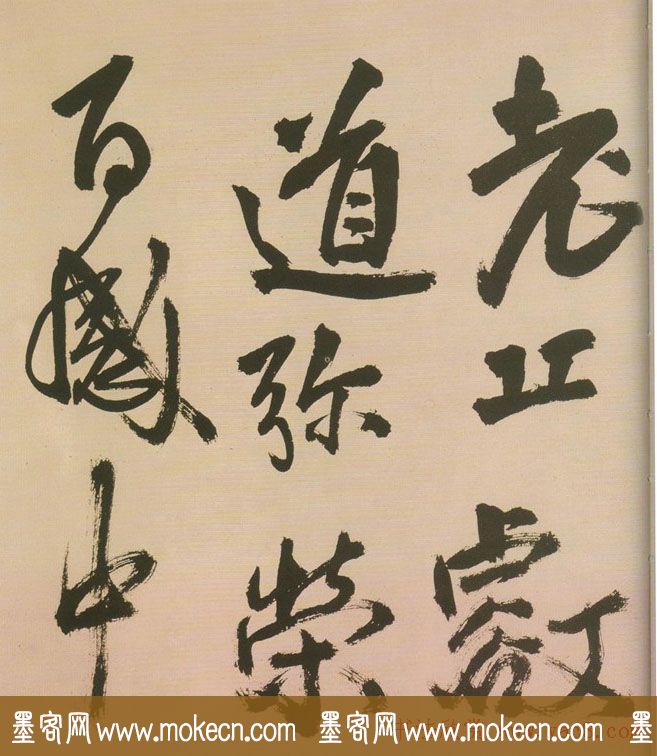 老丘壑
道弥榮
百感中
墨客网 www.mokecn.com 墨客网 www.mokecn.com